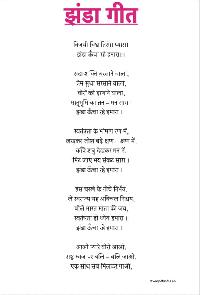 झंडा गीत
विजयी विश्व तिरंगा प्यारा
झंडा ऊँचा रहे हमारा।।
सदा शक्ति बरसाने वाला,
प्रेम सुधा सरसाने वाला,
वीरों को हरषाने वाला,
मातृभूमि का तन - मन सारा
झंडा ऊँचा रहे हमारा।
स्वतंत्रता के भीषण रण में,
लखकर जोश बढ़े क्षण - क्षण में,
काँपे शत्रु देखकर मन में,
मिट जाए भय संकट सारा।
झंडा ऊँचा रहे हमारा।
इस झण्डे के नीचे निर्भय,
ले स्वराज्य यह अविचल निश्चय,
बोलें भारत माता की जय,
स्वतंत्रता हो ध्येय हमारा।
झंडा ऊँचा रहे हमारा।
आओ प्यारे वीरो आओ,
राष्ट्र ध्वज पर बलि - बलि जाओ,
एक साथ सब मिलकर गाओ,